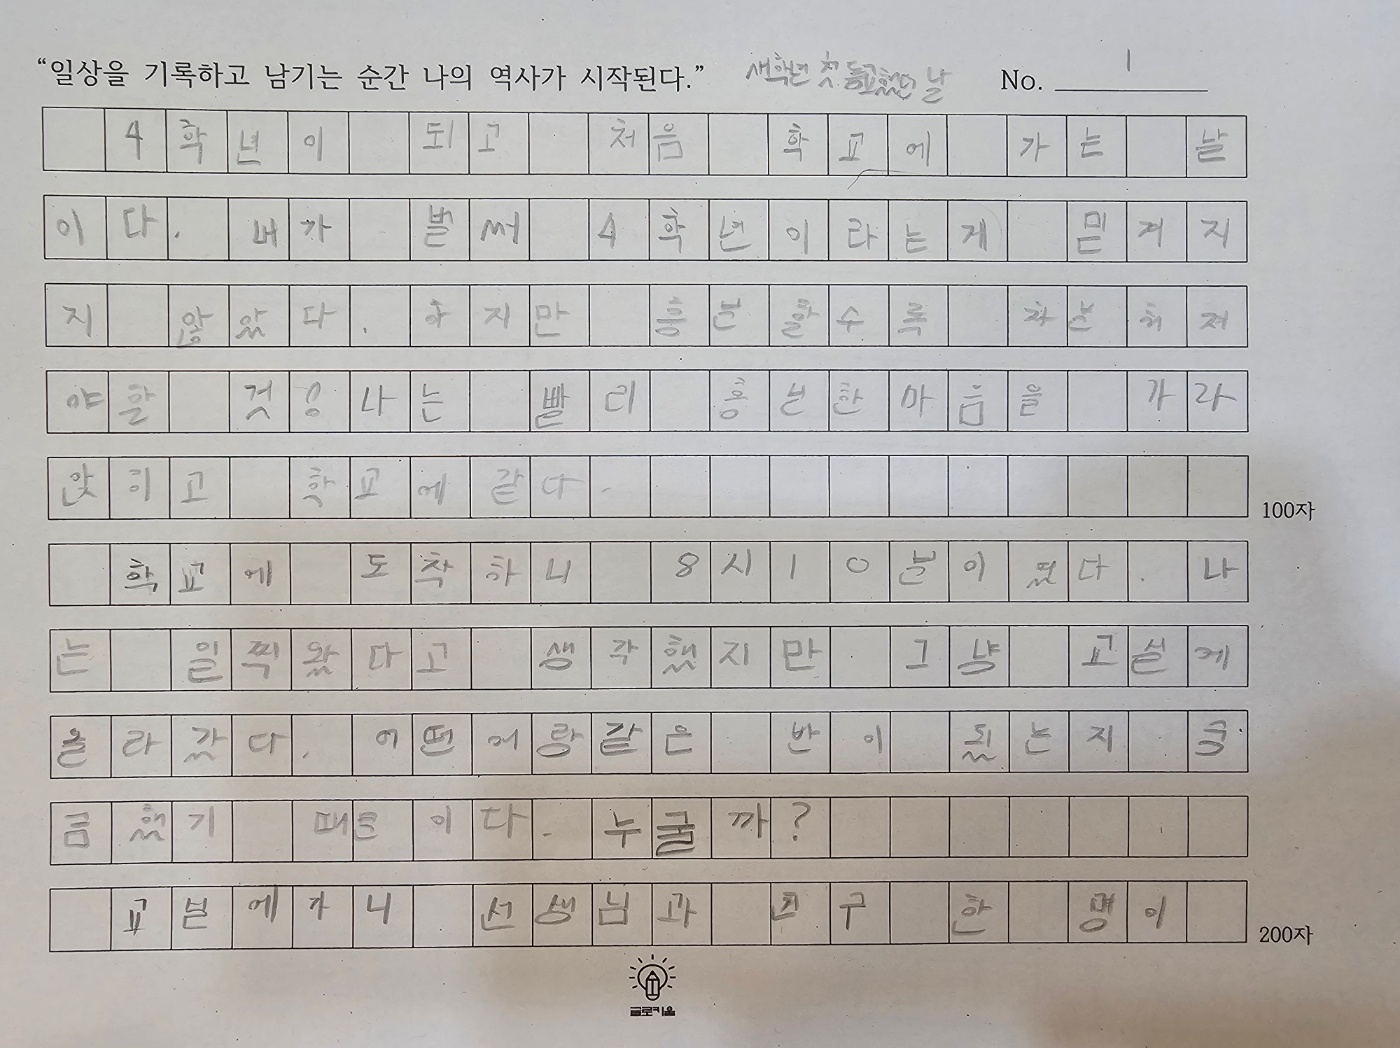 “일상을 기록하고 남기는 순간 나의 역사가 시작된다.” 새학년 첫 등교했던 날 No. 1
4학년이 되고 처음 학교에 가는 날
이다. 내가 벌써 4학년이라는게 믿겨지
지 않았다. 하지만 흥분할수록 차분해져
야할 것. 나는 빨리 흥분한마음을 가라
앉히고 학교에 같다.
100자
학교에 도착하니 8시10분이 됬다. 나
는 일찍왔다고 생각했지만 그냥 교실게
올라갔다. 어떤애랑같은 반이 됬는지 궁
금했기 때문이다. 누굴까?
교실에가니 선생님과 친구 한 명이
200자
글로키움